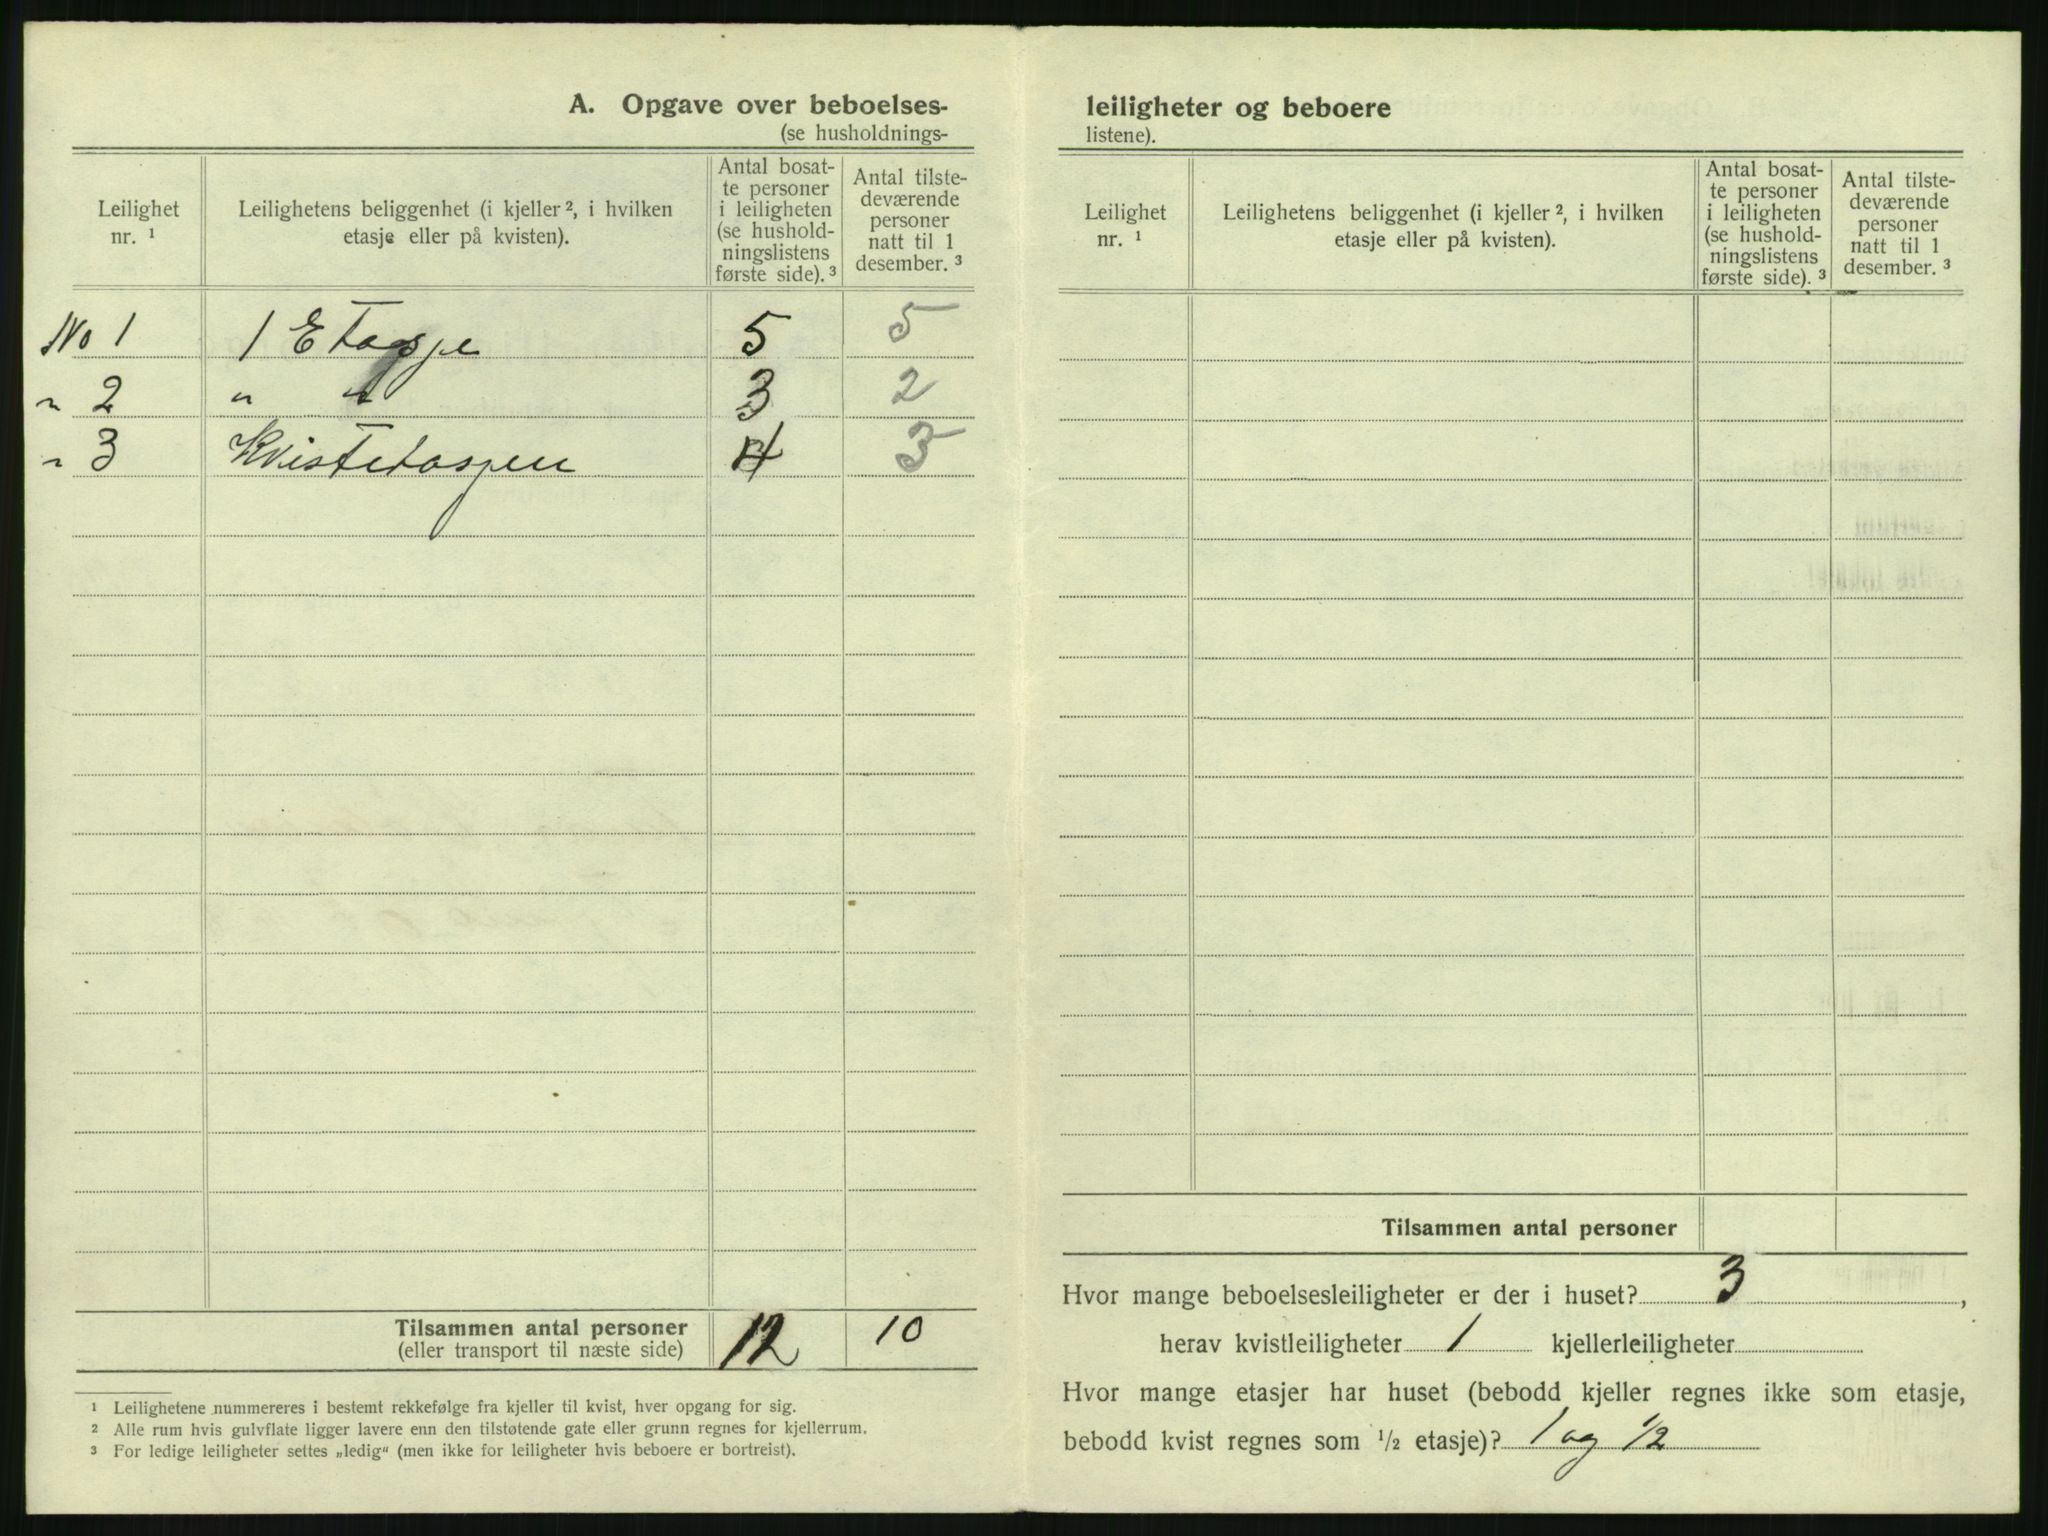 A. Opgave over beboelses-
(se husholdnings-
Leilighet
nr. ¹
Leilighetens beliggenhet (i kjeller ², i hvilken
etasje eller på kvisten).
Antal bosat-
te personer
i leiligheten
(se hushold-
ningslistens
første side). ³
Antal tilste-
deværende
personer
natt til 1
desember. ³
No 1 1 Etasje 5 5
" 2 " " 3 2
" 3 Kvistetasjen 4 3
Tilsammen antal personer
(eller transport til næste side)
12 10
¹ Leilighetene nummereres i bestemt rekkefølge fra kjeller til kvist, hver opgang for sig.
² Alle rum hvis gulvflate ligger lavere enn den tilstøtende gate eller grunn regnes for kjellerrum.
³ For ledige leiligheter settes „ledig“ (men ikke for leiligheter hvis beboere er bortreist).
leiligheter og beboere
listene).
Leilighet
nr. ¹
Leilighetens beliggenhet (i kjeller ², i hvilken
etasje eller på kvisten).
Antal bosat-
te personer
i leiligheten
(se hushold-
ningslistens
første side). ³
Antal tilste-
deværende
personer
natt til 1
desember. ³
Tilsammen antal personer
Hvor mange beboelsesleiligheter er der i huset? 3,
herav kvistleiligheter 1 kjellerleiligheter
Hvor mange etasjer har huset (bebodd kjeller regnes ikke som etasje,
bebodd kvist regnes som ½ etasje)? 1 og ½